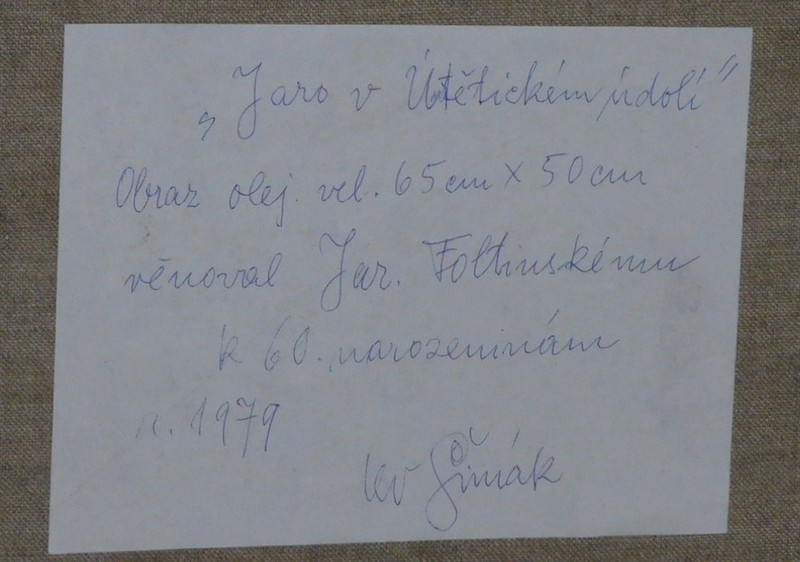 „Jaro v Útětickém údolí"
Obraz olej. vel. 65cm x 50cm
věnoval Jar. Foltinskému
k 60. narozeninám
r. 1979